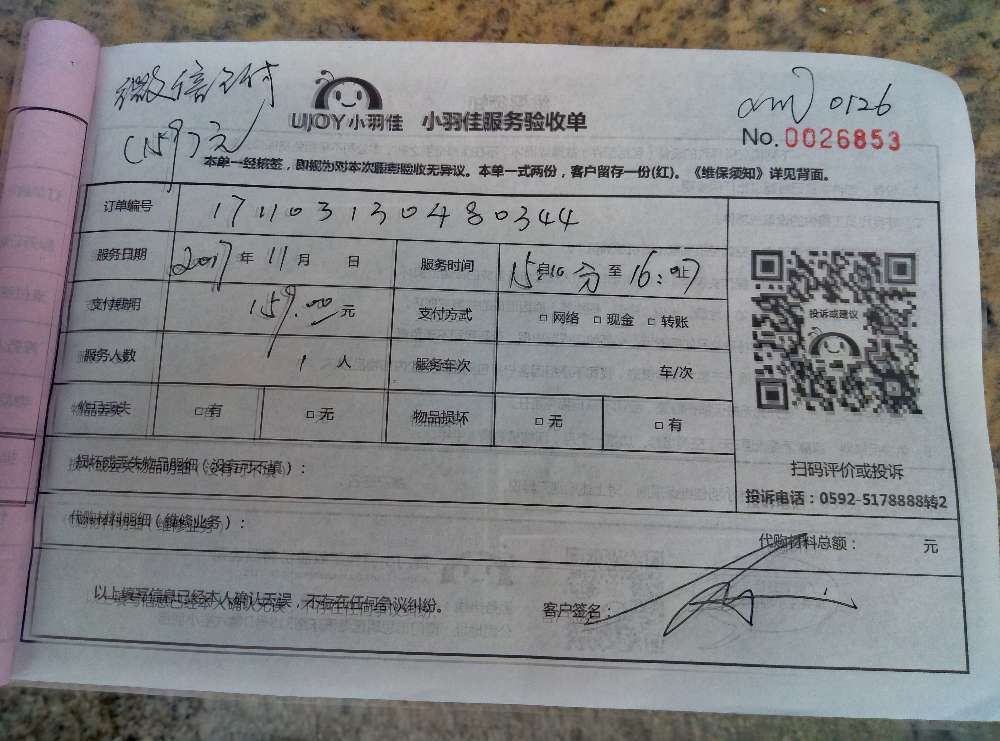 微信支付
(159)元
am 0126
UJOY 小羽佳 小羽佳服务验收单
No.0026853
本单一经签签，即视为对本次服务验收无异议。本单一式两份，客户留存一份(红)。《维保须知》详见背面。
订单编号 171103130480344
服务日期 2017年11月 日 服务时间 15 10分至16:07止
支付费用 159.00元 支付方式 □网络 □现金 □转账
服务人数 1人 服务车次 车/次
物品丢失 □有 □无 物品损坏 □无 □有
投诉或建议
扫码评价或投诉
投诉电话：0592-5178888转2
损坏或丢失物品明细（没有可不填）：
代购材料明细（维修业务）：
代购材料总额： 元
以上填写信息已经本人确认无误，不存在任何争议纠纷。 客户签名：